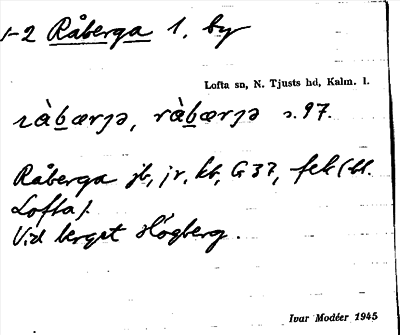 1-2 Råberga 1. by
Lofta sn, N. Tjusts hd, Kalm. l.
ràbærjə, ràbærjə s. 97.
Råberga jb, jr, kb, G 37, fek (bl.
Lofta).
Vid berget Högberg.
Ivar Modéer 1945